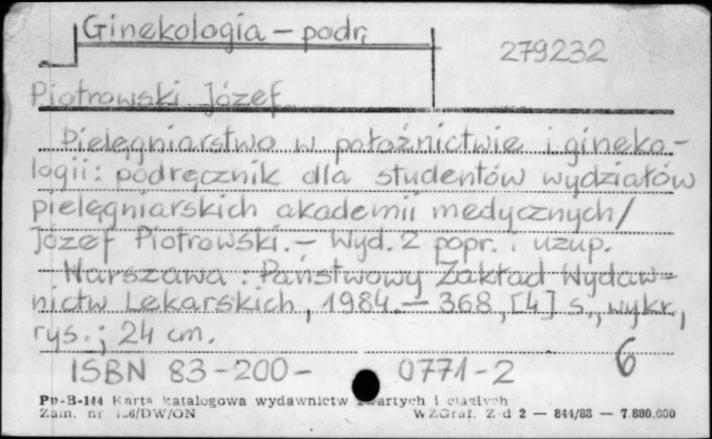 Ginekologia - podr.
279232
Piotrowski Józef
Pielęgniarstwo w położnictwie i gineko-
logii : podręcznik dla studentów wydziałów
pielęgniarskich akademii medycznych /
Józef Piotrowski. - Wyd. 2 popr. i uzup.
Warszawa : Państwowy Zakład Wydaw-
nictw Lekarskich, 1984. - 368, [4] s., wykr.,
rys. ; 24 cm.
ISBN 83-200- 0771-2
6
Pu-B-144 Karta katalogowa wydawnictw zwartych i ciągłych
Zam. nr /DW/ON WZGraf. Z-d 2 — 844/83 — 7.880.000